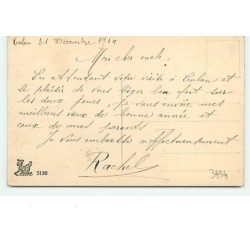 Colon 31 Décembre 191
Mon cher oncle,
En attendant votre visite à Colon et
le plaisir de vous bien fort sur
les deux joues, je vous envoie mes
meilleurs vœux de bonne année et
ceux de mes parents
Je vous embrasse affectueusement
Rachel
5130
3434